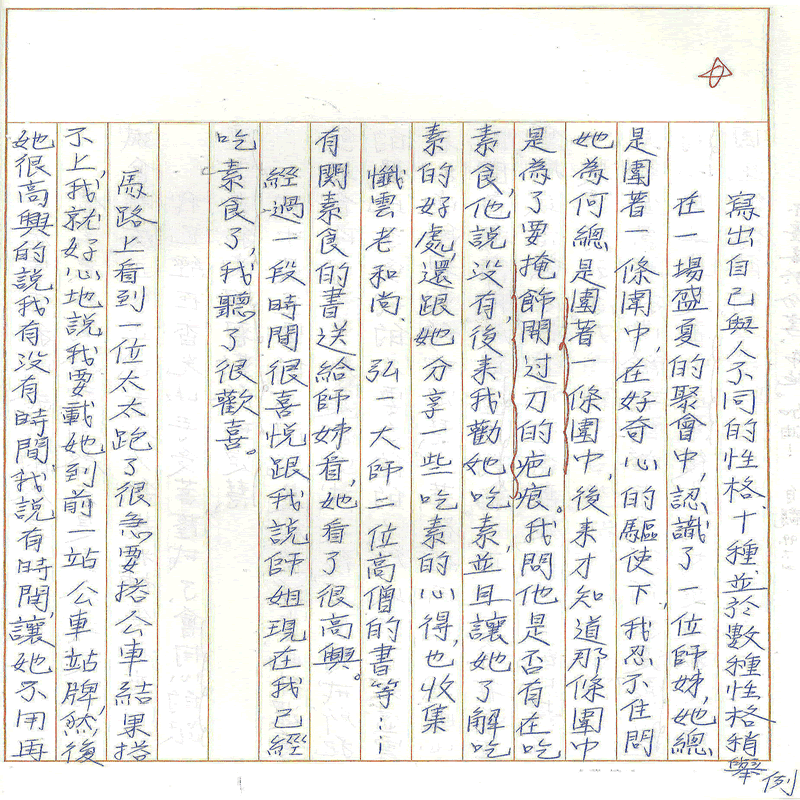 寫出自己與人不同的性格、十種,並於數種性格稍舉例
在一場盛夏的聚會中,認識了一位師姊,她總
是圍著一條圍巾,在好奇心的驅使下,我忍不住問
她為何總是圍著一條圍巾,後來才知道那條圍巾
是為了要掩飾開過刀的疤痕。我問他是否有在吃
素食,他說沒有,後來我勸她吃素,並且讓她了解吃
素的好處,還跟她分享一些吃素的心得,也收集
懺雲老和尚、弘一大師二位高僧的書等……
有関素食的書送給師姊看,她看了很高興。
經過一段時間很喜悅跟我說師姐現在我已經
吃素食了,我聽了很歡喜。
馬路上看到一位太太跑了很急要搭公車結果搭
不上,我就好心地說我要載她到前一站公車站牌,然後
她很高興的說我有沒有時間,我說有時間,讓她不用再